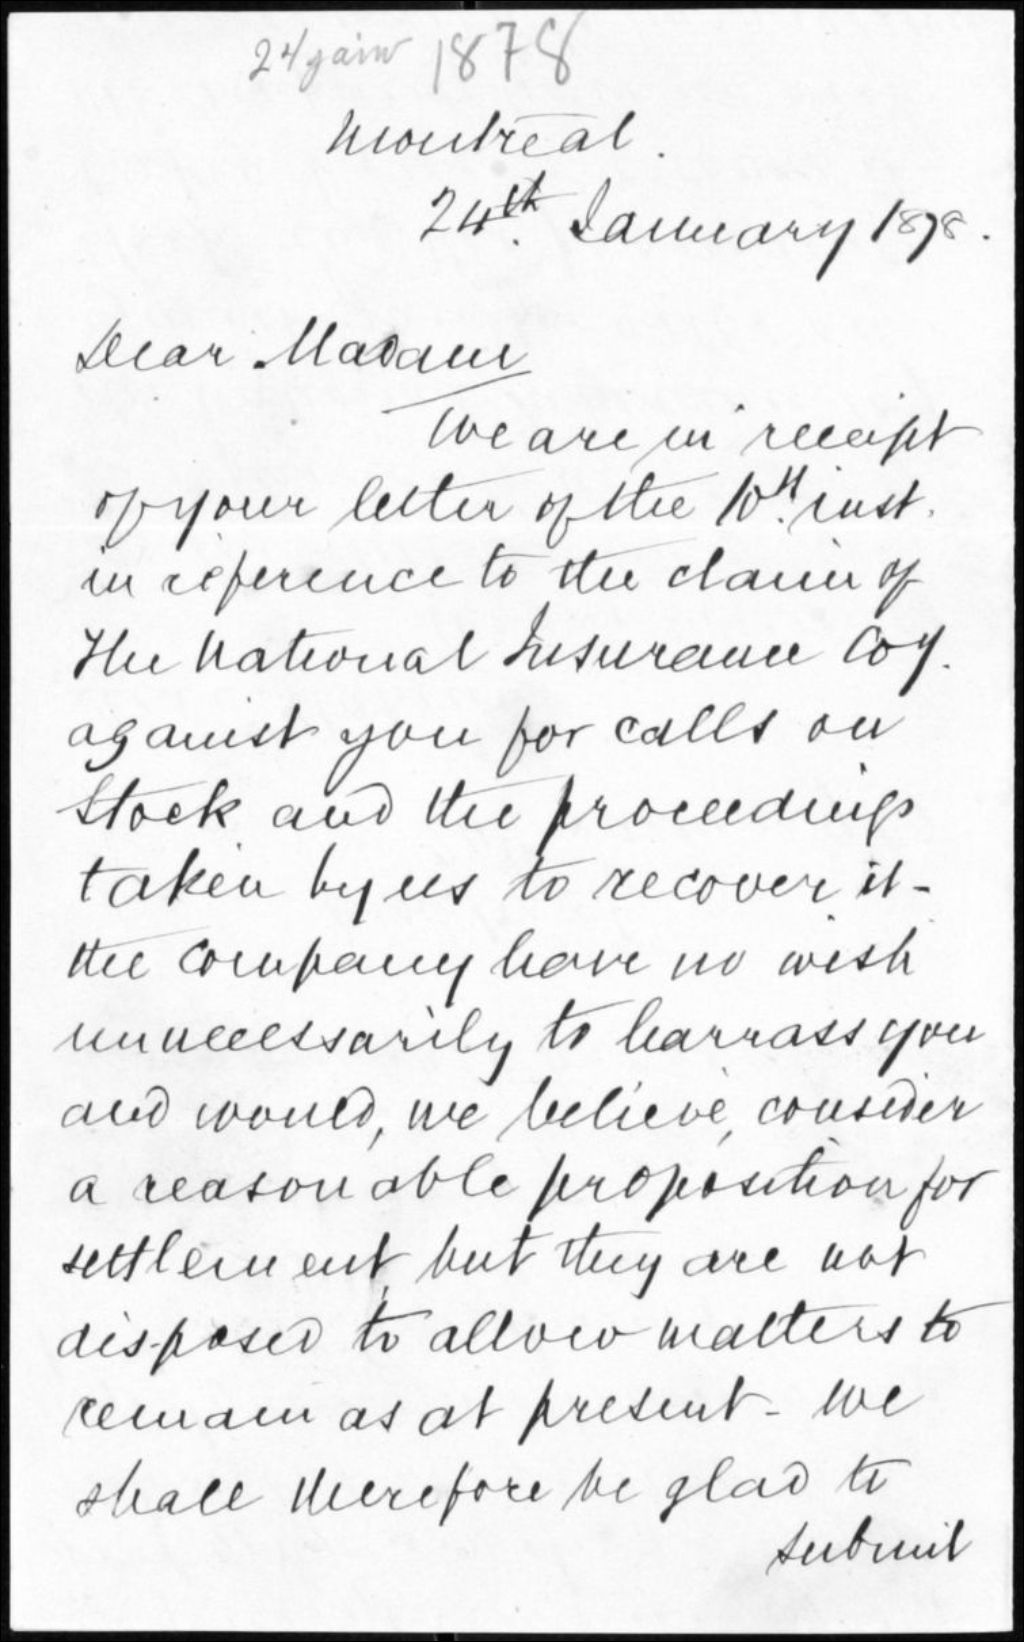 24 janv 1878
Montreal.
24th. January 1878.
Dear Madam
We are in receipt
of your letter of the 10th. inst.
in reference to the claim of
The National Insurance Coy.
against you for calls on
Stock and the proceedings
taken by us to recover it -
the Company have no wish
unnecessarily to harrass you
and would, we believe, consider
a reasonable proposition for
settlement, but they are not
disposed to allow matters to
remain as at present - We
shall therefore be glad to
submit